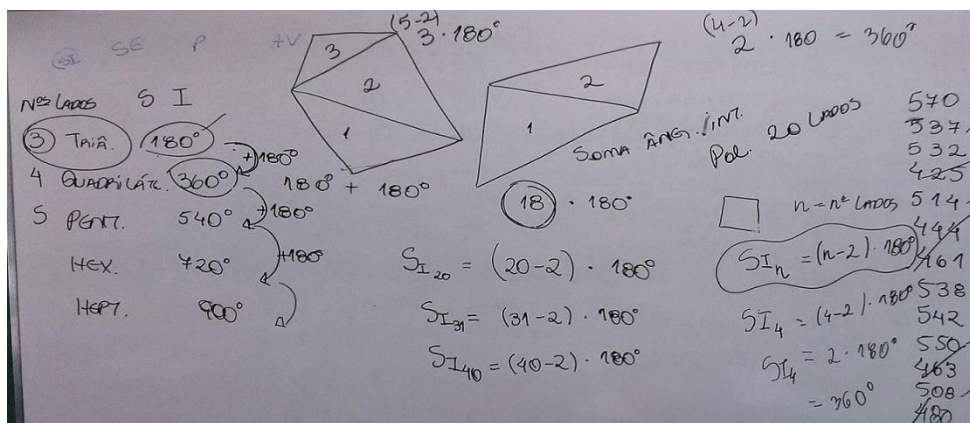 SI SE P AV
Nos LADOS S I
3 TRIÂ. 180°
+180°
4 QUADRILÁT. 360°
+180°
5 PENT. 540°
+180°
HEX. 720°
HEPT. 900°
180° + 180°
(5-2)
3 · 180°
3
2
1
(4-2)
2 · 180 = 360°
2
1
SOMA ÂNG. INT.
POL. 20 LADOS
18 · 180°
SI20 = (20-2) · 180°
SI31 = (31-2) · 180°
SI40 = (40-2) · 180°
n = nº LADOS
SIn = (n-2) · 180°
SI4 = (4-2) · 180°
SI4 = 2 · 180°
= 360°
570
537
532
425
514
444
461
538
542
550
463
508
480